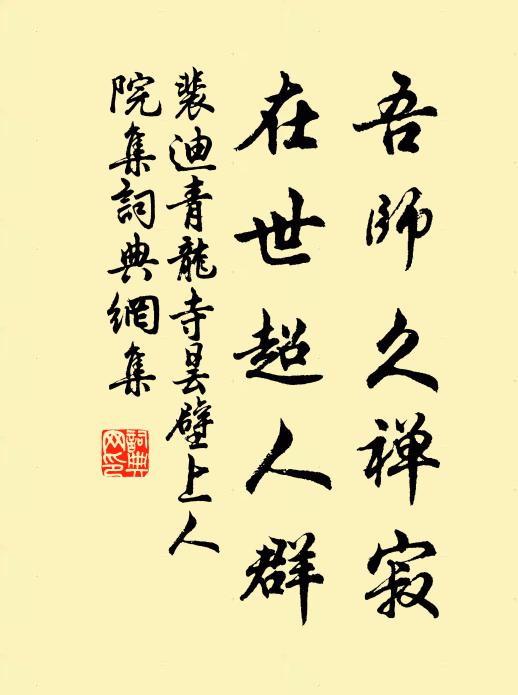 吾師久禅寂
在世超人群
裴迪青龍寺曇壁上人
院集詞典網集
詞典
网印